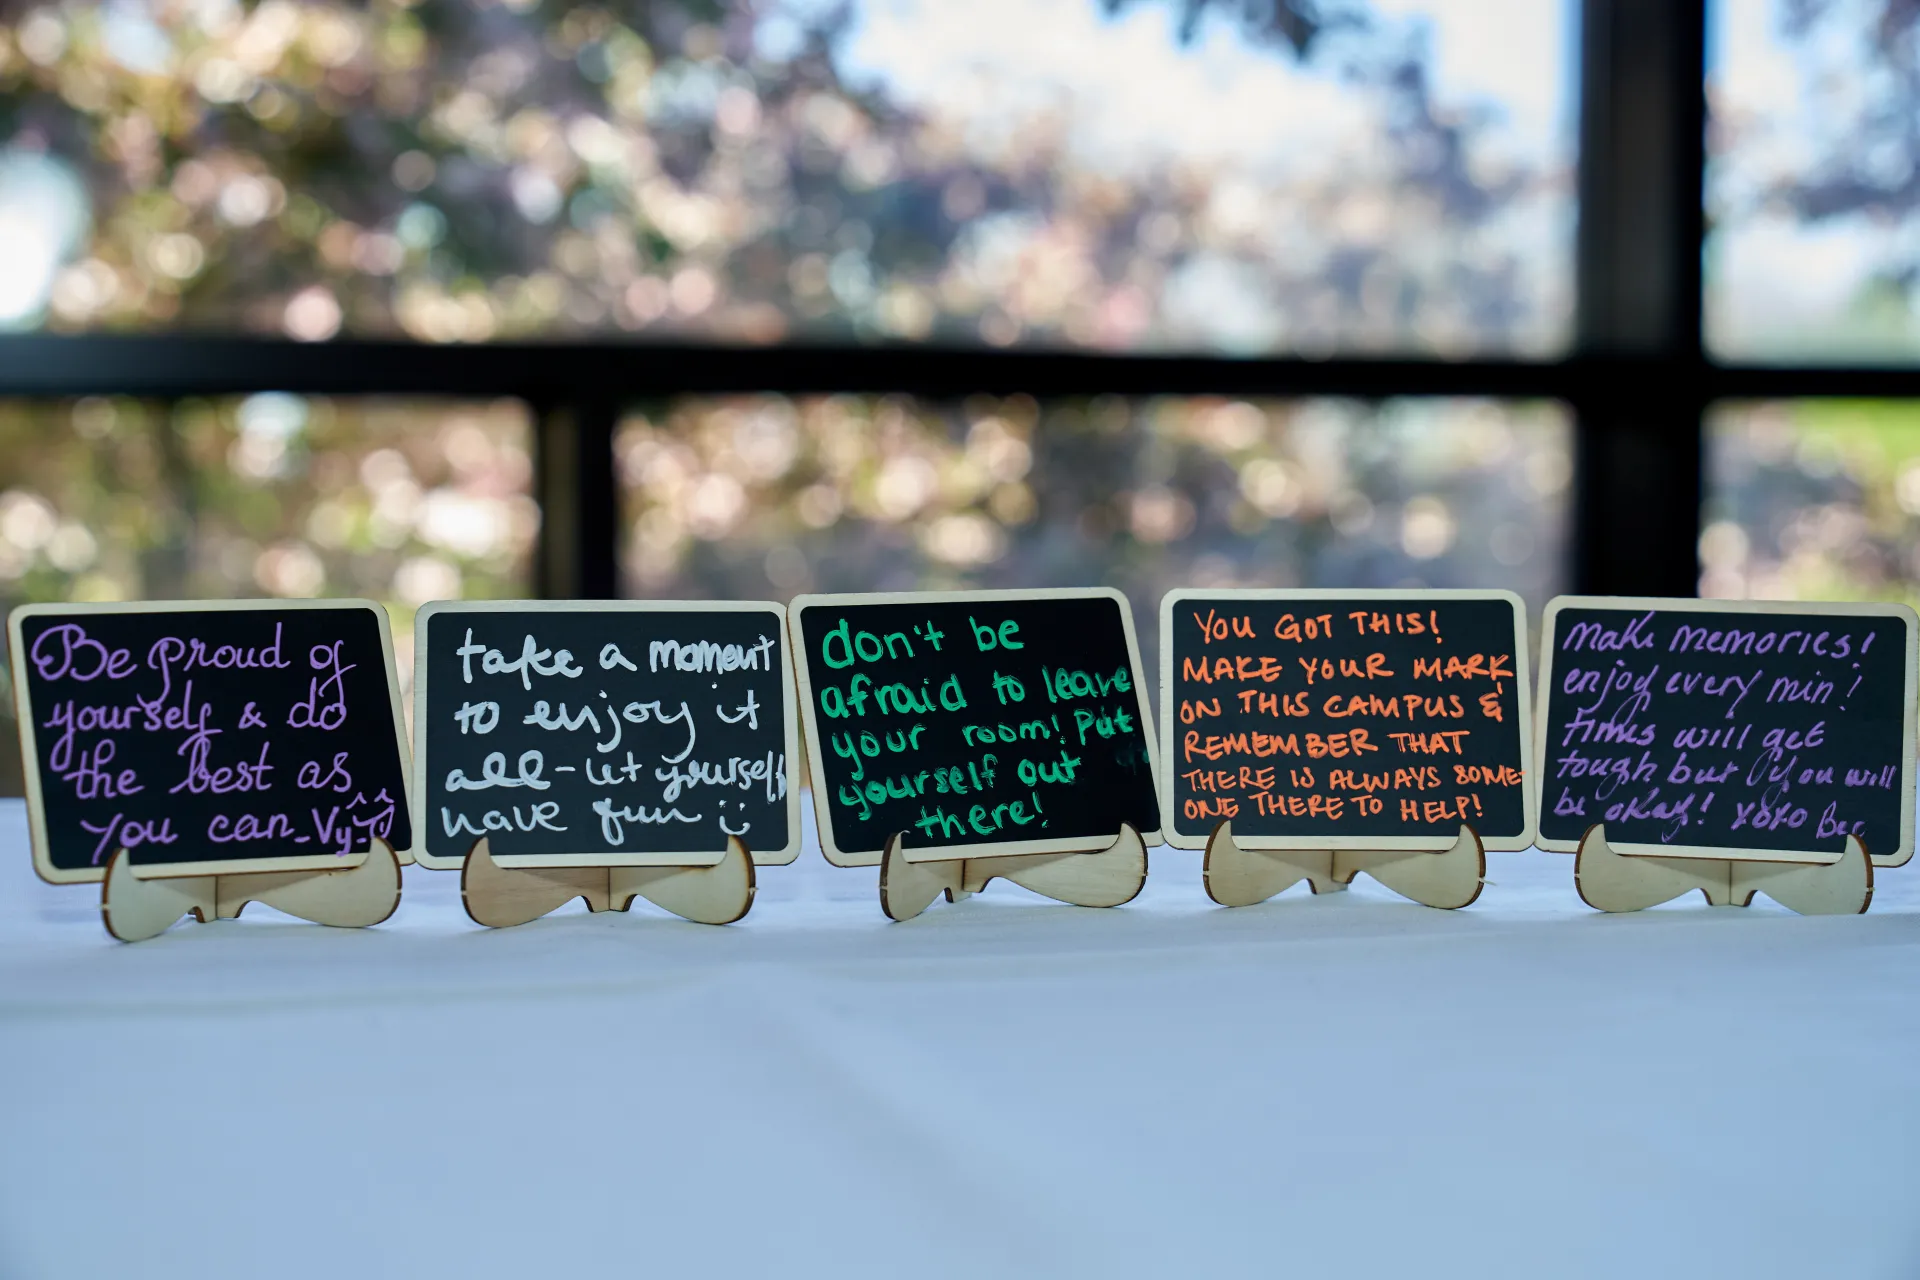 Be proud of
yourself & do
the best as
you can - Vy -
take a moment
to enjoy it
all - let yourself
have fun :)
don't be
afraid to leave
your room! Put
yourself out
there!
YOU GOT THIS!
MAKE YOUR MARK
ON THIS CAMPUS &
REMEMBER THAT
THERE IS ALWAYS SOME-
ONE THERE TO HELP!
make memories!
enjoy every min!
times will get
tough but you will
be okay! xoxo Bec